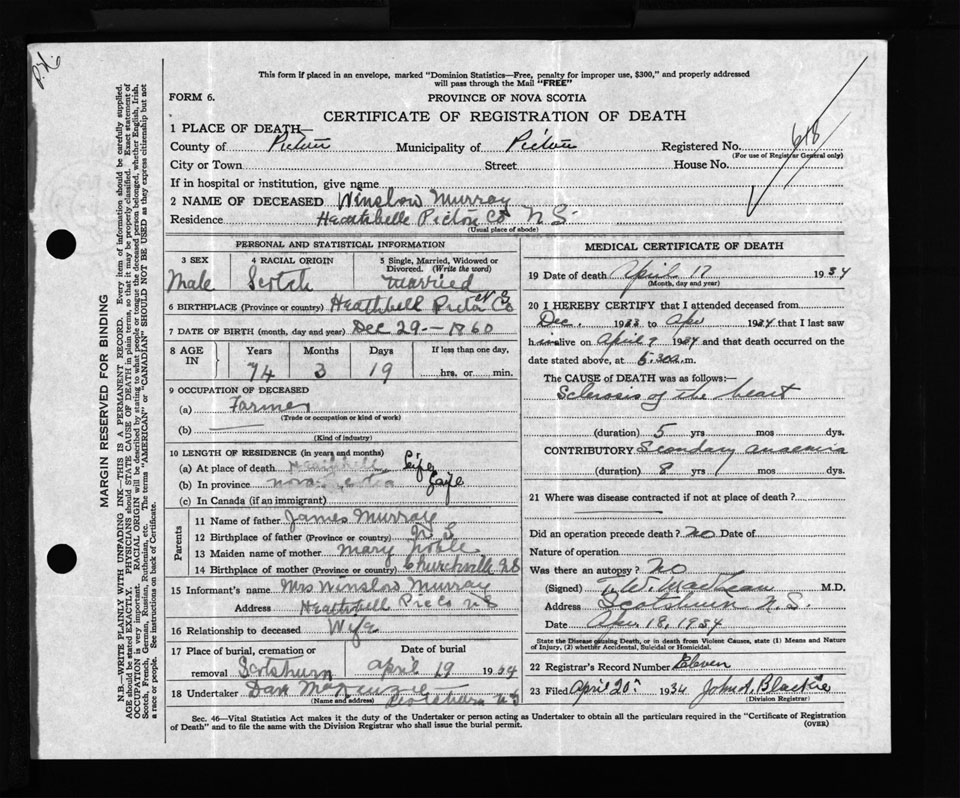 This form if placed in an envelope, marked "Dominion Statistics—Free, penalty for improper use, $300," and properly addressed
will pass through the Mail "FREE"
FORM 6.
PROVINCE OF NOVA SCOTIA
CERTIFICATE OF REGISTRATION OF DEATH
1 PLACE OF DEATH—
County of Pictou Municipality of Pictou Registered No. 618
(For use of Registrar General only)
City or Town Street House No.
If in hospital or institution, give name
2 NAME OF DECEASED Winslow Murray
Residence Heathbelle Pictou Co N S
(Usual place of abode)
PERSONAL AND STATISTICAL INFORMATION
3 SEX 4 RACIAL ORIGIN 5 Single, Married, Widowed or
Divorced. (Write the word)
Male Scotch Married
6 BIRTHPLACE (Province or country) Heathbell Picto Co N S
7 DATE OF BIRTH (month, day and year) Dec 29.—1860
8 AGE IN Years Months Days If less than one day,
74 3 19 hrs. or min.
9 OCCUPATION OF DECEASED
(a) Farmer
(Trade or occupation or kind of work)
(b)
(Kind of industry)
10 LENGTH OF RESIDENCE (in years and months)
(a) At place of death Life
(b) In province
(c) In Canada (if an immigrant)
Parents
11 Name of father James Murray
12 Birthplace of father (Province or country) N S
13 Maiden name of mother Mary Noble
14 Birthplace of mother (Province or country) Churchville N S
15 Informant's name Mrs Winslow Murray
Address Heathbell Pic Co N S
16 Relationship to deceased Wife
17 Place of burial, cremation or Date of burial
removal Scotsburn April 19 1934
18 Undertaker Dan McKenzie
(Name and address) Scotsburn N S
MEDICAL CERTIFICATE OF DEATH
19 Date of death April 17 1934
(Month, day and year)
20 I HEREBY CERTIFY that I attended deceased from
Dec. 1933 to Apr 1934 that I last saw
him alive on April 9 1934 and that death occurred on the
date stated above, at 5.30a.m.
The CAUSE of DEATH was as follows:—
Sclerosis of the heart
(duration) 5 yrs mos dys.
CONTRIBUTORY Secondary anaemia
(duration) 8 yrs mos dys.
21 Where was disease contracted if not at place of death?
Did an operation precede death? no Date of
Nature of operation
Was there an autopsy? No
(Signed) M.D.
Address Scotsburn N.S.
Date Apr. 18, 1934
State the Disease causing Death, or in death from Violent Causes, state (1) Means and Nature
of Injury, (2) whether Accidental, Suicidal or Homicidal.
22 Registrar's Record Number Eleven
23 Filed April 20th 1934 John A. Blackie
(Division Registrar)
Sec. 46—Vital Statistics Act makes it the duty of the Undertaker or person acting as Undertaker to obtain all the particulars required in the "Certificate of Registration
of Death" and to file the same with the Division Registrar who shall issue the burial permit.
(OVER)
MARGIN RESERVED FOR BINDING
N.B.—WRITE PLAINLY WITH UNFADING INK—THIS IS A PERMANENT RECORD. Every item of information should be carefully supplied.
AGE should be stated EXACTLY. PHYSICIANS should STATE CAUSE OF DEATH in plain terms, so that it may be properly classified. Exact statement of
OCCUPATION is very important. RACIAL ORIGIN will be described by stating to what people or tongue the deceased person belonged, whether English, Irish,
Scotch, French, German, Russian, Ruthenian, etc. The terms "AMERICAN" or "CANADIAN" SHOULD NOT BE USED as they express citizenship but not
a race or people. See instructions on back of Certificate.